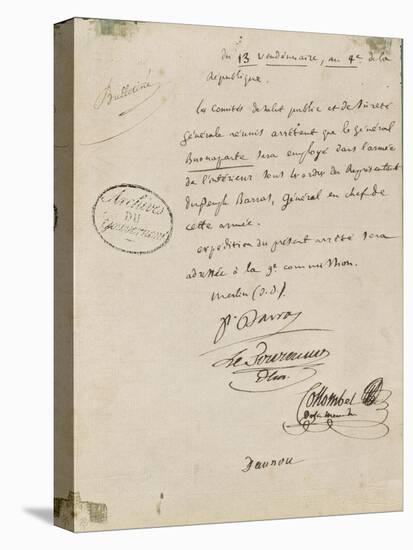 du 13 Vendémiaire, au 4e de la
République.
Bulletiné
Les Comités de Salut public et de Sûreté
générale réunis arrêtent que le général
Buonaparte sera employé dans l'armée
de l'intérieur sous les ordres du Représentant
du Peuple Barras, Général en chef de
cette armée.
expédition du présent arrêté sera
adressée à la 9e commission.
Archives
DU
Gouvernement
Merlin (d.D).
P. Barras
Collombel
Daunou